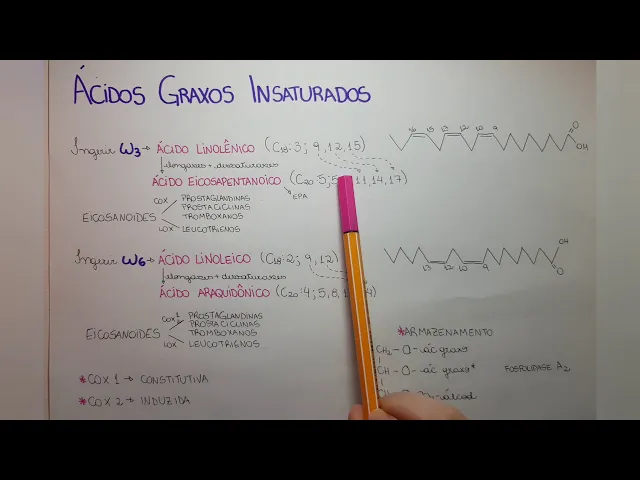 ÁCIDOS GRAXOS INSATURADOS
Ingerir ω3 → ÁCIDO LINOLÊNICO (C18:3; 9,12,15)
↓ elongases + dessaturases
ÁCIDO EICOSAPENTANOICO (C20:5; 5 11,14,17)
EPA
EICOSANOIDES
COX
PROSTAGLANDINAS
PROSTACICLINAS
TROMBOXANOS
LOX
LEUCOTRIENOS
16 15 13 12 10 9
O
OH
Ingerir ω6 → ÁCIDO LINOLEICO (C18:2; 9,12)
↓ elongases + dessaturases
ÁCIDO ARAQUIDÔNICO (C20:4; 5,8, 4)
EICOSANOIDES
COX 1
PROSTAGLANDINAS
PROSTACICLINAS
TROMBOXANOS
LOX
LEUCOTRIENOS
13 12 10 9
OH
O
*COX 1 → CONSTITUTIVA
*COX 2 → INDUZIDA
*ARMAZENAMENTO
CH2 - O - ác graxo
CH - O - ác graxo*
FOSFOLIDASE A2
álcool